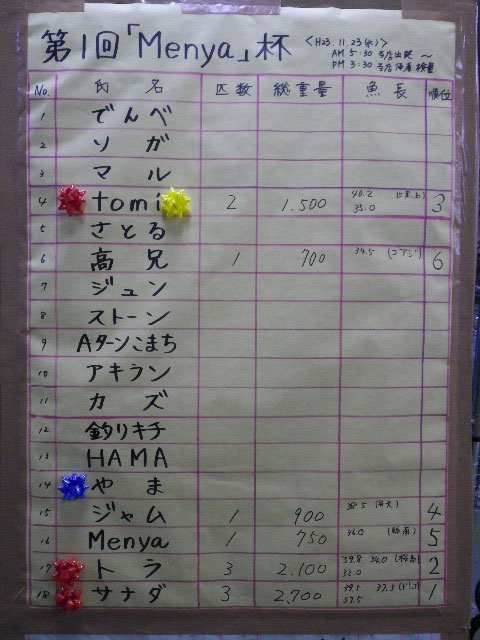 第1回「Menya」杯
<H23.11.23(水)>
AM 5:30 当店出発 ～
PM 3:30 当店帰着 検量
No. 氏名 匹数 総重量 魚長 順位
1 でんべ
2 ソガ
3 マル
4 tomi 2 1.500 40.2 35.0 3
5 さとる
6 高兄 1 700 34.5 6
7 ジュン
8 ストーン
9 Aターンこまち
10 アキラン
11 カズ
12 釣りキチ
13 HAMA
14 やま
15 ジャム 1 900 38.5 4
16 Menya 1 750 36.0 5
17 トラ 3 2.100 39.8 34.0 32.0 2
18 サナダ 3 2,700 39.5 37.5 37.5 1